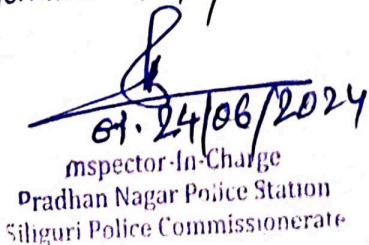 24/06/2024
Inspector-In-Charge
Pradhan Nagar Police Station
Siliguri Police Commissionerate